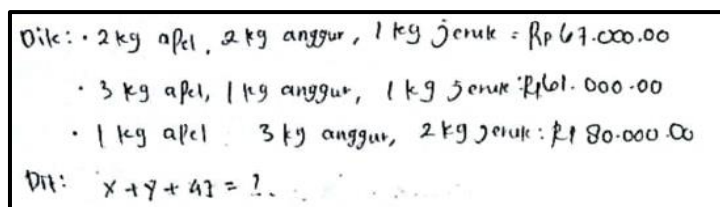 Dik: · 2 kg apel, 2 kg anggur, 1 kg jeruk = Rp 67.000.00
· 3 kg apel, 1 kg anggur, 1 kg jeruk : Rp 61.000.00
· 1 kg apel 3 kg anggur, 2 kg jeruk : Rp 80.000.00
Dit: x + y + 4z = ?.